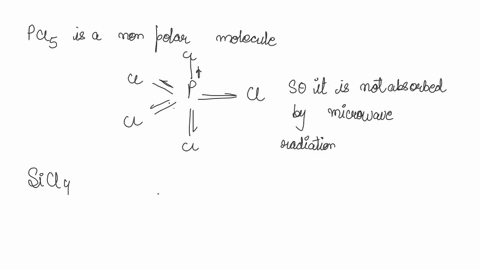 PCl5 is a non polar molecule
Cl
Cl P Cl
Cl
Cl
So it is not absorbed
by microwave
radiation
SiCl4